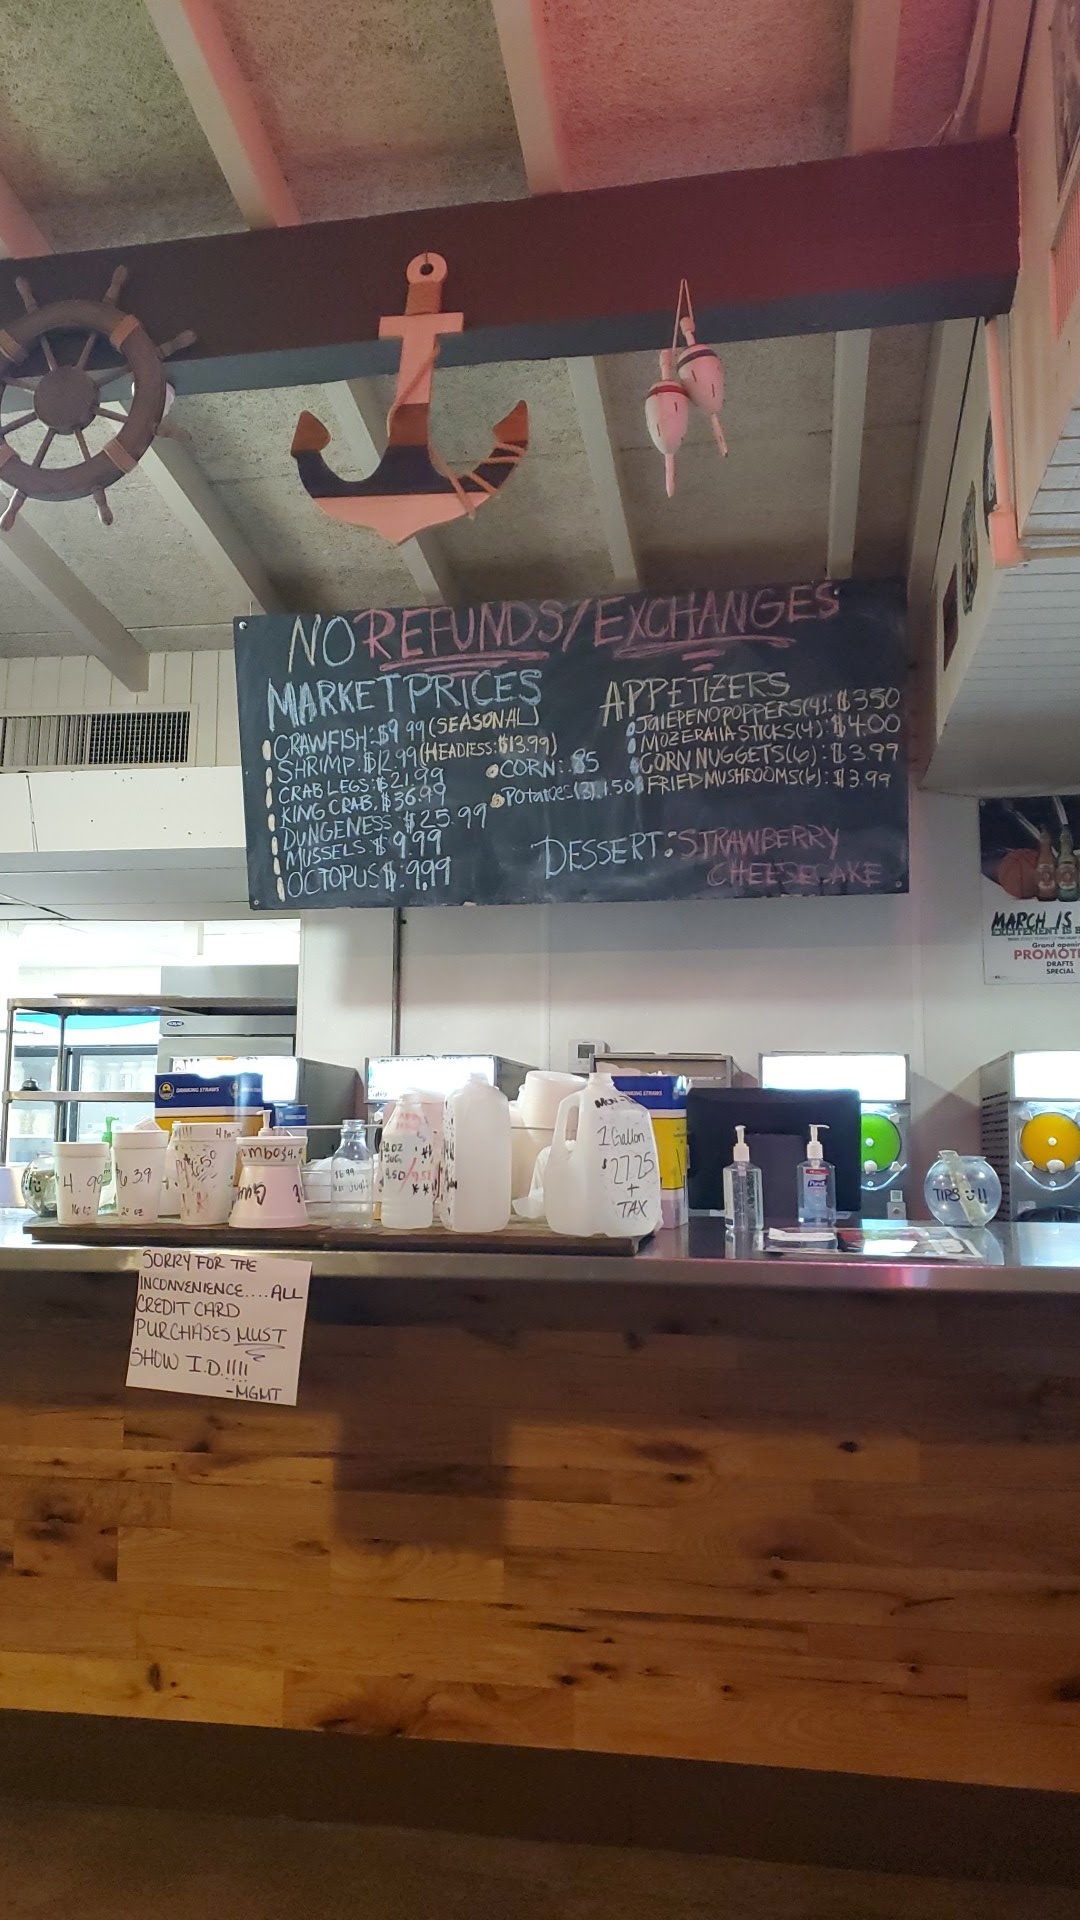 NO REFUNDS/EXCHANGES
MARKET PRICES
CRAWFISH: $9.99 (SEASONAL)
SHRIMP: $12.99 (HEADLESS: $13.99)
CRAB LEGS: $21.99
KING CRAB: $36.99
DUNGENESS $25.99
MUSSELS: $9.99
OCTOPUS $: 9.99
CORN: .85
POTATOES (3) 1.50
APPETIZERS
JALEPENO POPPERS (4): $3.50
MOZERALLA STICKS (4): $4.00
CORN NUGGETS (6): $3.99
FRIED MUSHROOMS (6): $3.99
DESSERT: STRAWBERRY
CHEESECAKE
MARCH IS
Grand opening
PROMOTI
DRAFTS
SPECIAL
DRINKING STRAWS
4.99
16 oz
1 Gallon
$27.25
+
TAX
TIPS !!
SORRY FOR THE
INCONVENIENCE....ALL
CREDIT CARD
PURCHASES MUST
SHOW I.D.!!!!
-MGMT